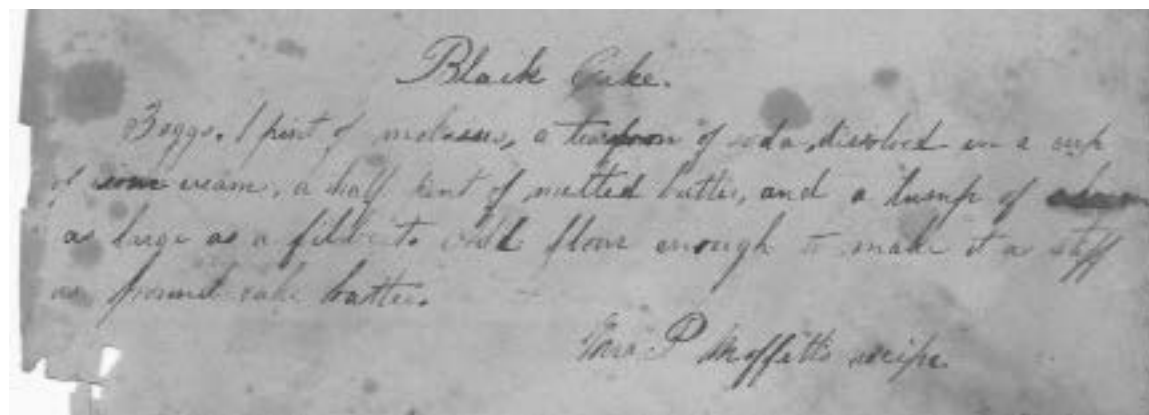 Black Cake.
3 eggs. 1 pint of molasses, a teaspoon of soda, dissolved in a cup
of sour cream, a half pint of melted butter, and a lump of
as large as a filbert. add flour enough to make it a stiff
as pound cake batter.
Mrs. P Moffitt's recipe